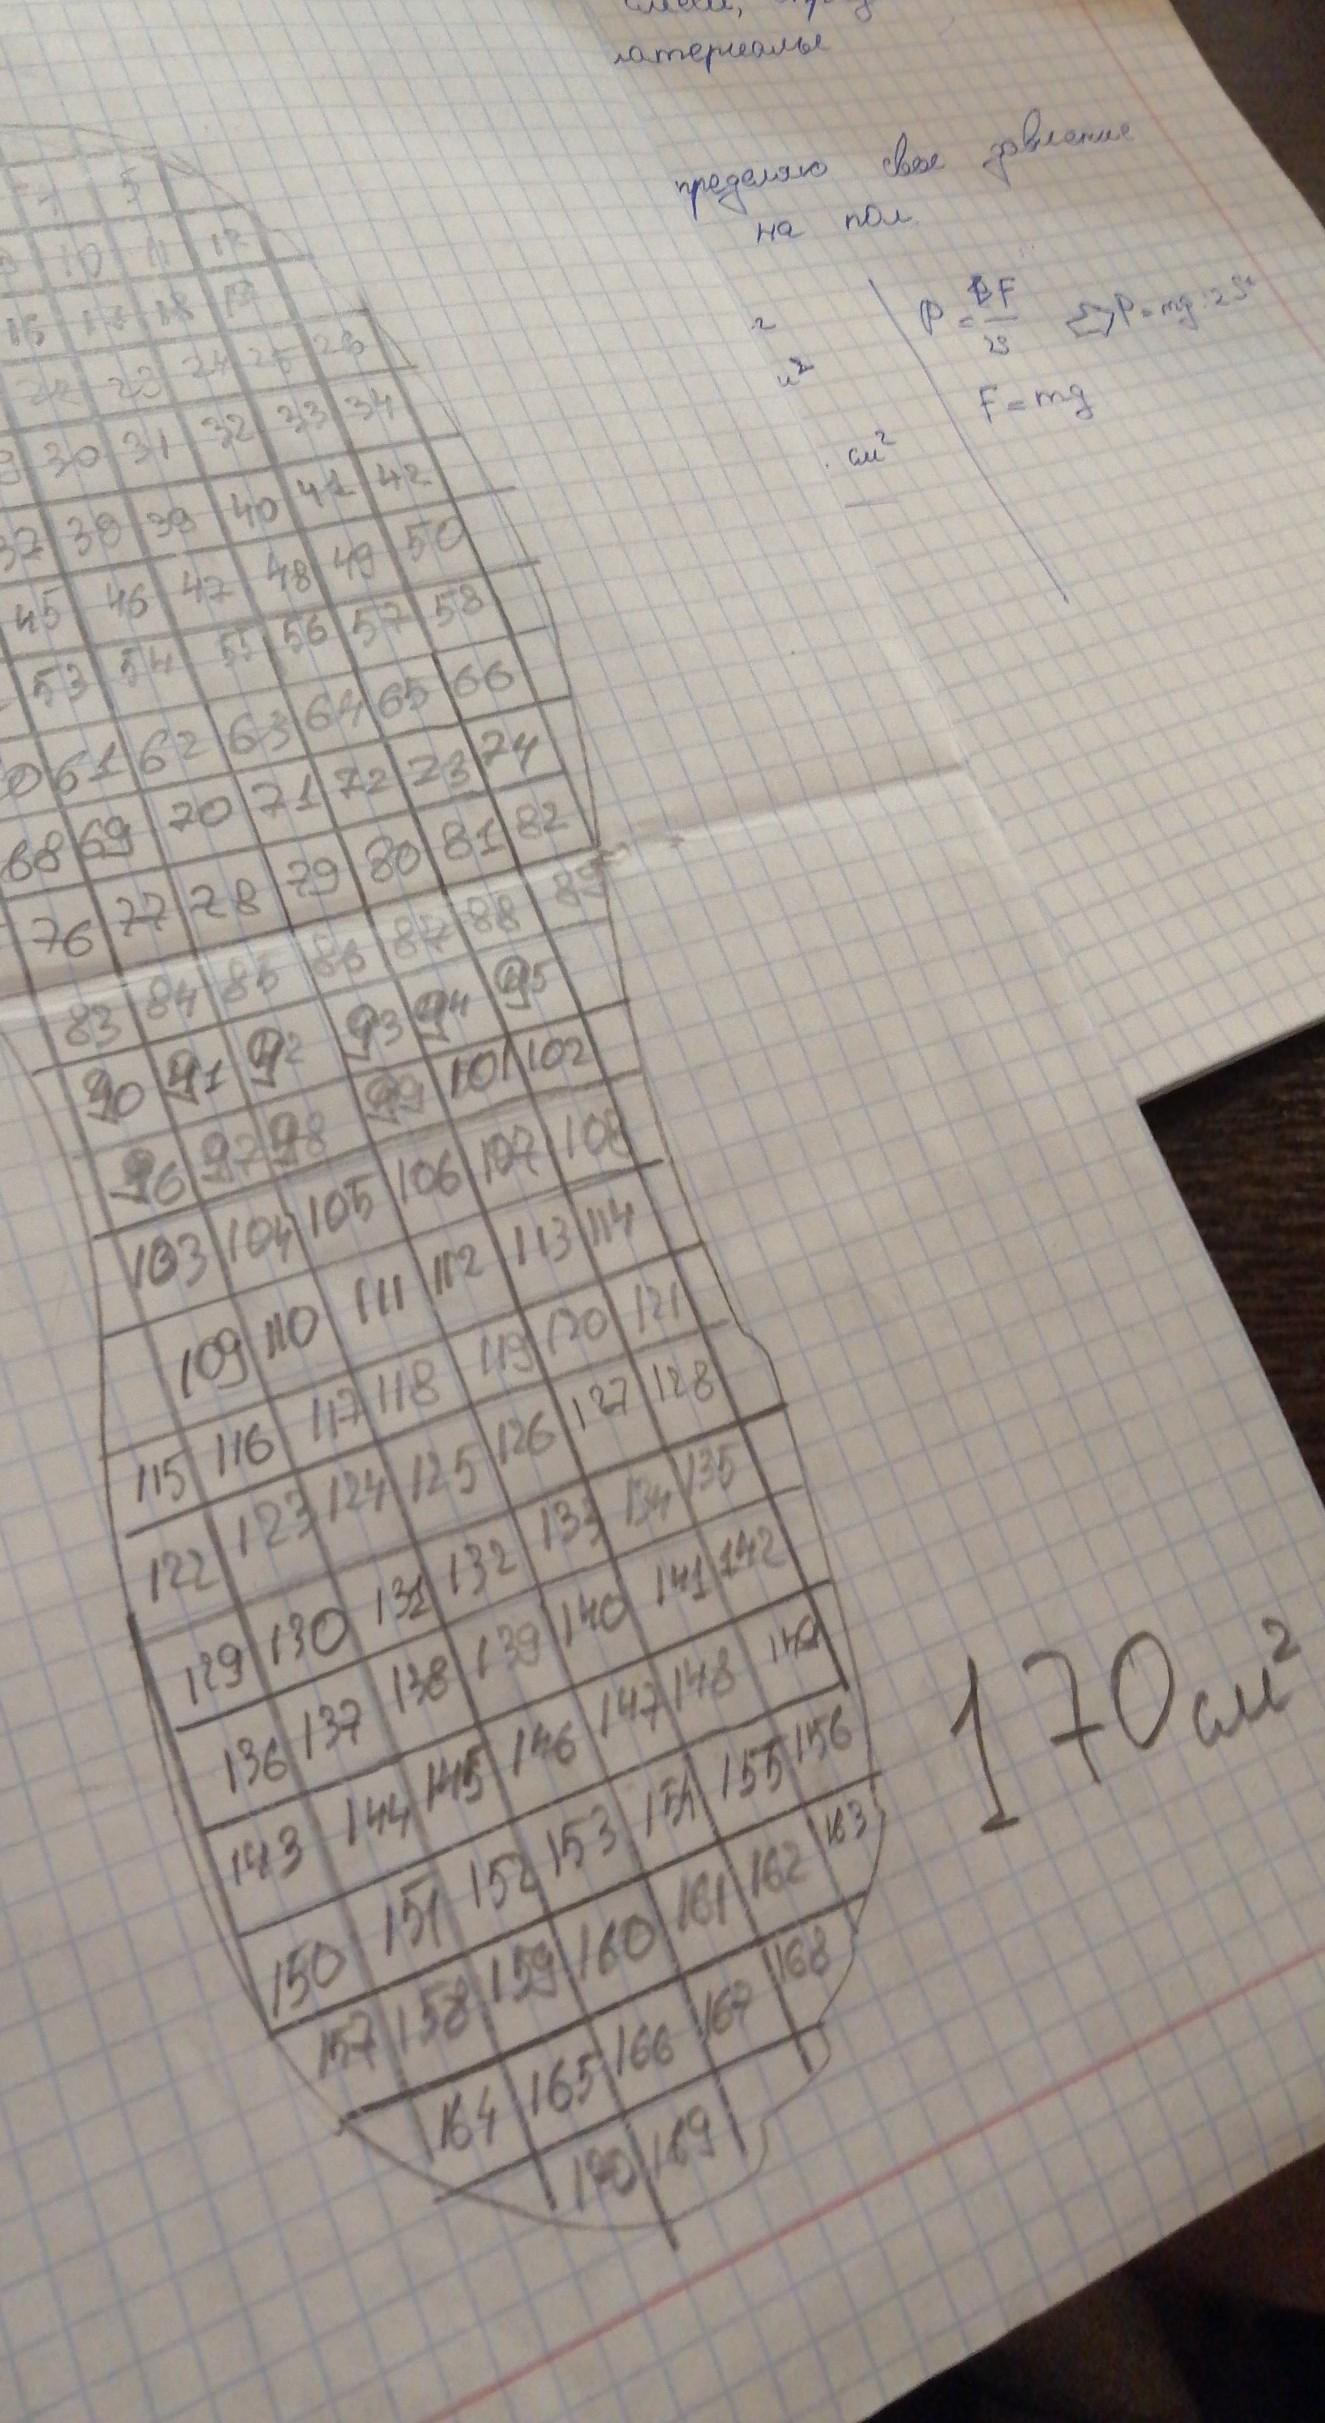 латериалы
пределяю свое давление
на пол.
P = F / 2S => P = mg : 2S
F = mg
см²
5
10 11 12
15 17 18 19
22 23 24 25 26
30 31 32 33 34
37 38 39 40 41 42
45 46 47 48 49 50
53 54 55 56 57 58
61 62 63 64 65 66
68 69 70 71 72 73 74
76 77 78 79 80 81 82
83 84 85 86 87 88 89
90 91 92 93 94 95
96 97 98 99 101 102
103 104 105 106 107 108
109 110 111 112 113 114
115 116 117 118 119 120 121
122 123 124 125 126 127 128
129 130 131 132 133 134 135
136 137 138 139 140 141 142
143 144 145 146 147 148 149
150 151 152 153 154 155 156
157 158 159 160 161 162 163
164 165 166 167 168
170 169
170 см²